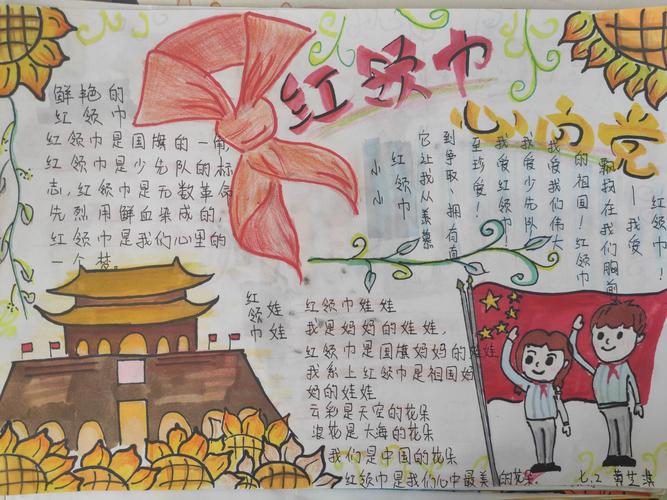 红领巾
心向党
鲜艳的
红领巾
红领巾是国旗的一角,
红领巾是少先队的标
志,红领巾是无数革命
先烈用鲜血染成的,
红领巾是我们心里的
一个梦。
小小
红领巾
它让我从羡慕
到争取、拥有直
至珍爱!
我爱红领巾!
我爱少先队!
我爱我们伟大
的祖国!红领巾
飘扬在我们胸前
—我爱
红领巾
红领巾
娃娃
红领巾娃娃
我是妈妈的娃娃,
红领巾是国旗妈妈的娃娃
我系上红领巾是祖国妈
妈的娃娃
云彩是天空的花朵
浪花是大海的花朵
我们是中国的花朵
红领巾是我们心中最美的花朵
七.2 黄